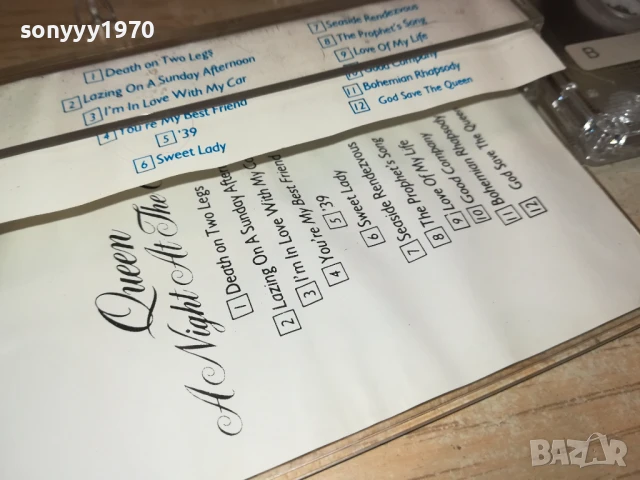 sonyyy1970
1 Death on Two Legs
2 Lazing On A Sunday Afternoon
3 I'm In Love With My Car
4 You're My Best Friend
5 '39
6 Sweet Lady
7 Seaside Rendezvous
8 The Prophet's Song
9 Love Of My Life
10 Good Company
11 Bohemian Rhapsody
12 God Save The Queen
B
Queen
A Night At The
1 Death on Two Legs
2 Lazing On A Sunday
3 I'm In Love With My
4 You're My Best Friend
5 '39
6 Sweet Lady
7 Seaside Rendezvous
8 The Prophet's Song
9 Love Of My Life
10 Good Company
11 Bohemian Rhapsody
12 God Save The
BAZAR
bg